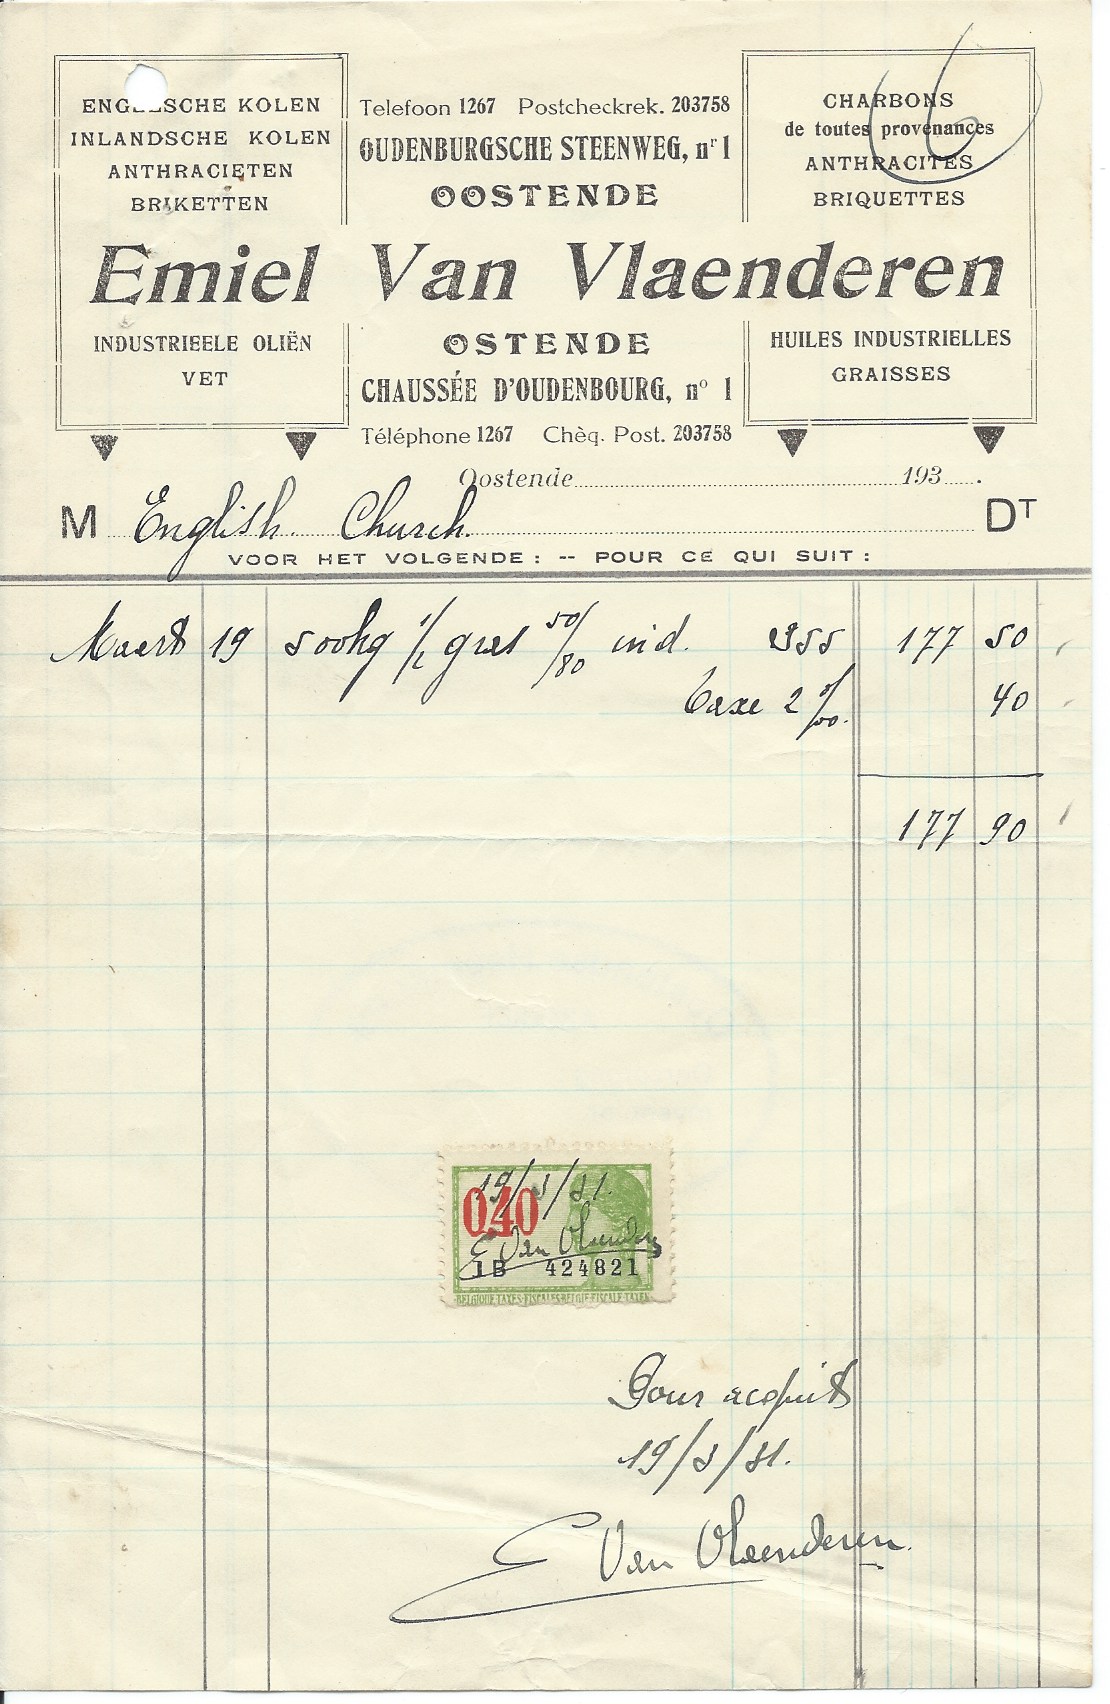 6
ENGELSCHE KOLEN
INLANDSCHE KOLEN
ANTHRACIETEN
BRIKETTEN
Telefoon 1267 Postcheckrek. 203758
OUDENBURGSCHE STEENWEG, nr 1
OOSTENDE
CHARBONS
de toutes provenances
ANTHRACITES
BRIQUETTES
Emiel Van Vlaenderen
INDUSTRIEELE OLIËN
VET
OSTENDE
CHAUSSÉE D'OUDENBOURG, no 1
Téléphone 1267 Chèq. Post. 203758
HUILES INDUSTRIELLES
GRAISSES
Oostende 193 .
M English Church DT
VOOR HET VOLGENDE : -- POUR CE QUI SUIT :
Maart 19 500kg 1/2 gras 50/80 ind. 355 177 50
taxe 2 0/00. 40
177 90
19/3/31.
0.40
E Van Vlaenderen
1B 424821
BELGIQUE-TAXES-FISCALES-BELGIE-FISCALE TAXEN
Pour acquit
19/3/31.
E Van Vlaenderen.